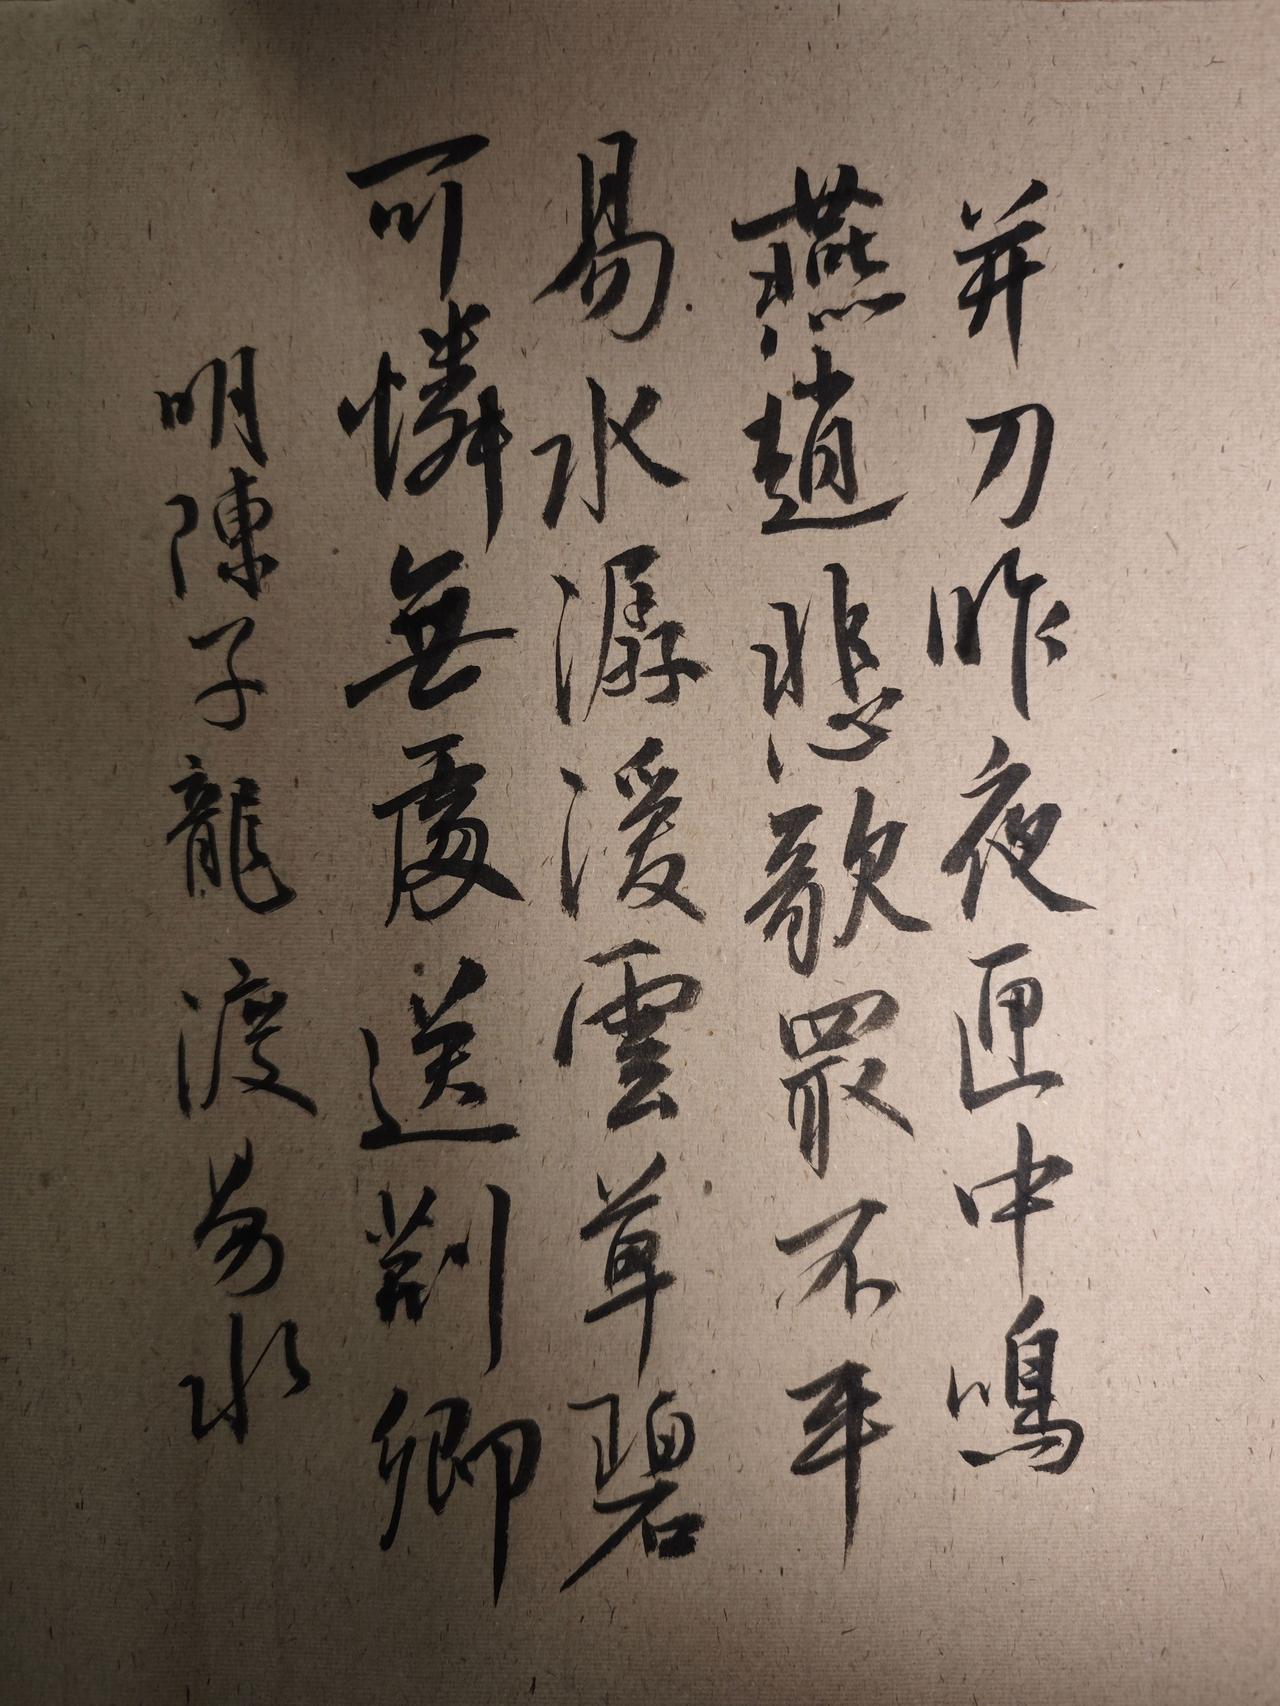 并刀昨夜匣中鳴
燕趙悲歌最不平
易水潺湲雲草碧
可憐無處送荊卿
明陳子龍渡易水